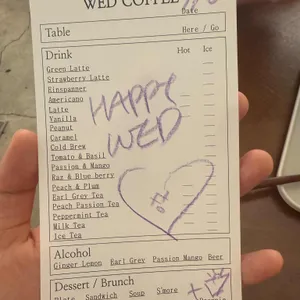 WED COFFEE
Date
Table Here / Go
Drink Hot Ice
Green Latte
Strawberry Latte
Einspanner
Americano
Latte
Vanilla
Peanut
Caramel
Cold Brew
Tomato & Basil
Passion & Mango
Raz & Blue berry
Peach & Plum
Earl Grey Tea
Peach Passion Tea
Peppermint Tea
Milk Tea
Ice Tea
HAPPY
WED
Alcohol
Ginger Lemon Earl Grey Passion Mango Beer
Dessert / Brunch
Sandwich Soup S'more